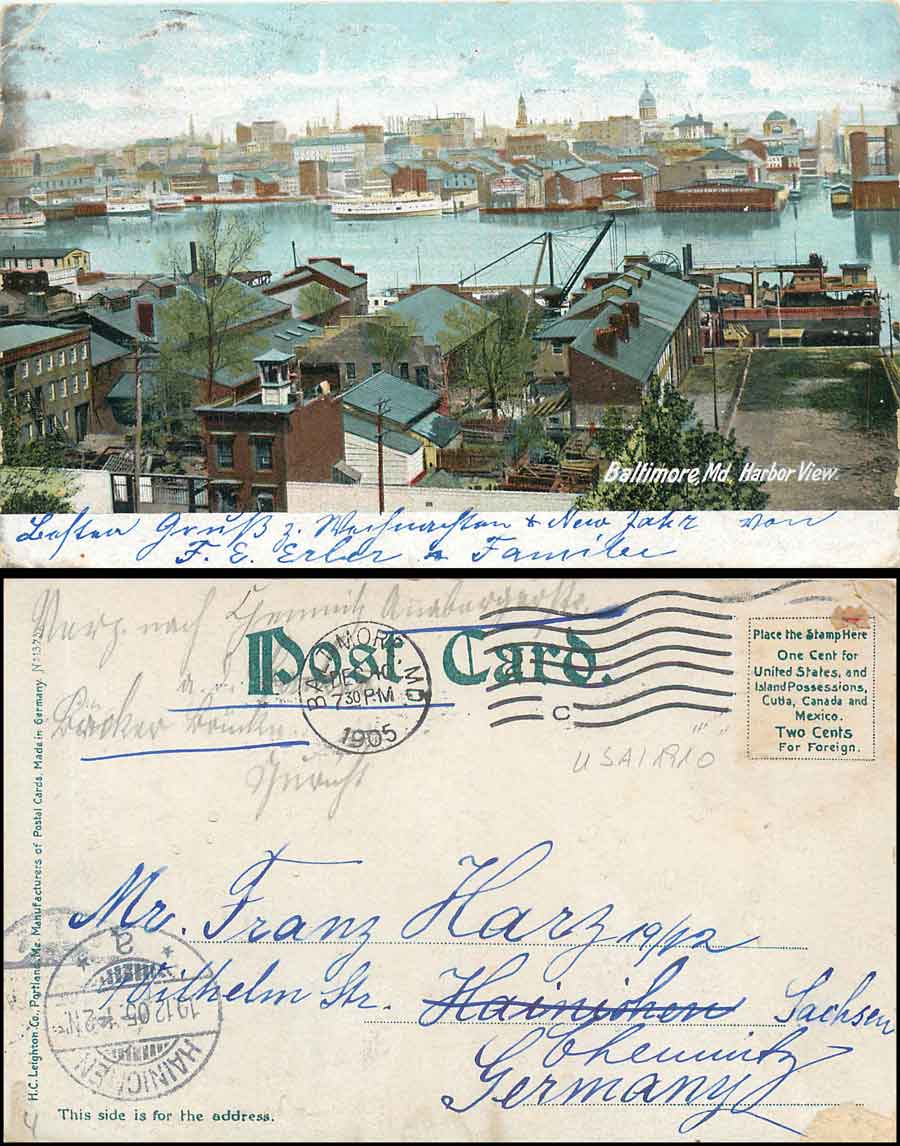 Baltimore, Md. Harbor View.
Besten Gruß z. Weihnachten & New Jahr von
F. E. Erler & Familie
Verz. nach Chemnitz Annabergerstr.
Post Card.
BALTIMORE MD
DEC 10
7 30 P.M
1905
C
Place the Stamp Here
One Cent for
United States, and
Island Possessions,
Cuba, Canada and
Mexico.
Two Cents
For Foreign.
USA 1910
Bäcker
Mr. Franz Harz 19/12
Wilhelm Str. Hainichen Sachsen
Chemnitz
Germany
HAINICHEN
19.12.05
H.C. Leighton Co., Portland, Me. Manufacturers of Postal Cards. Made in Germany.
This side is for the address.